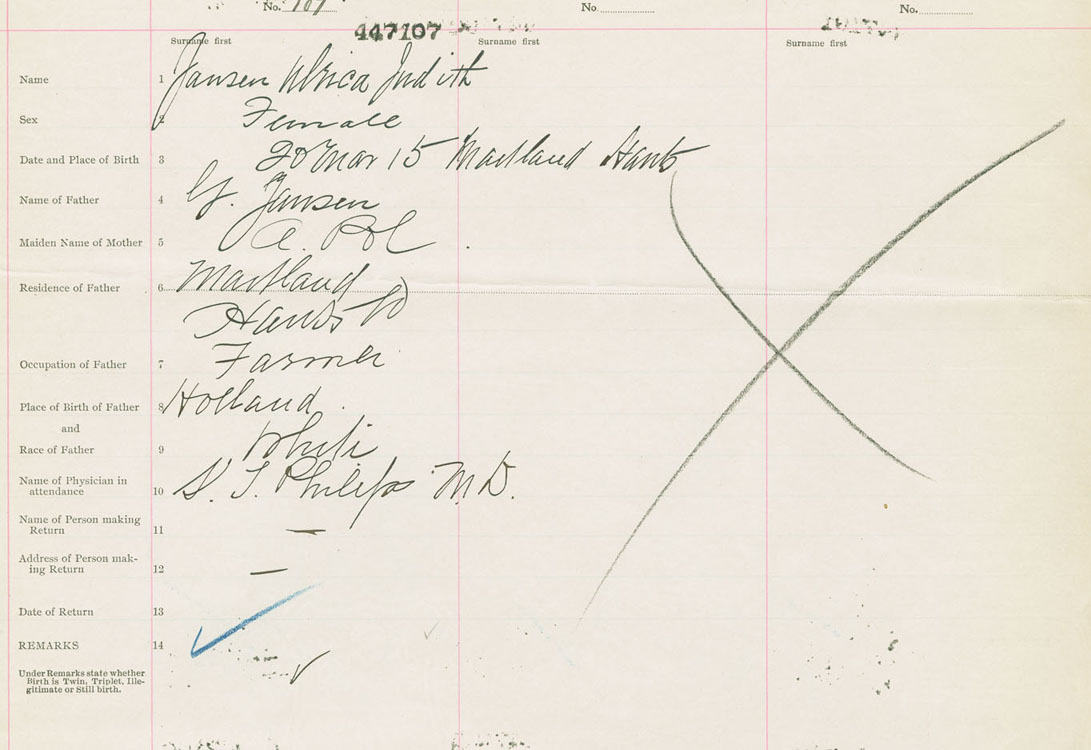 No. 107 No. No.
447107
Surname first Surname first Surname first
Name 1 Jansen Ulrica Judith
Sex 2 Female
Date and Place of Birth 3 20 Mar 15 Maitland Hants
Name of Father 4 G. Jansen
Maiden Name of Mother 5 A. Pol
Residence of Father 6 Maitland
Hants Co
Occupation of Father 7 Farmer
Place of Birth of Father 8 Holland
and
Race of Father 9 White
Name of Physician in
attendance 10 S. T. Philips M.D.
Name of Person making
Return 11 —
Address of Person mak-
ing Return 12 —
Date of Return 13
REMARKS 14
Under Remarks state whether
Birth is Twin, Triplet, Ille-
gitimate or Still birth.